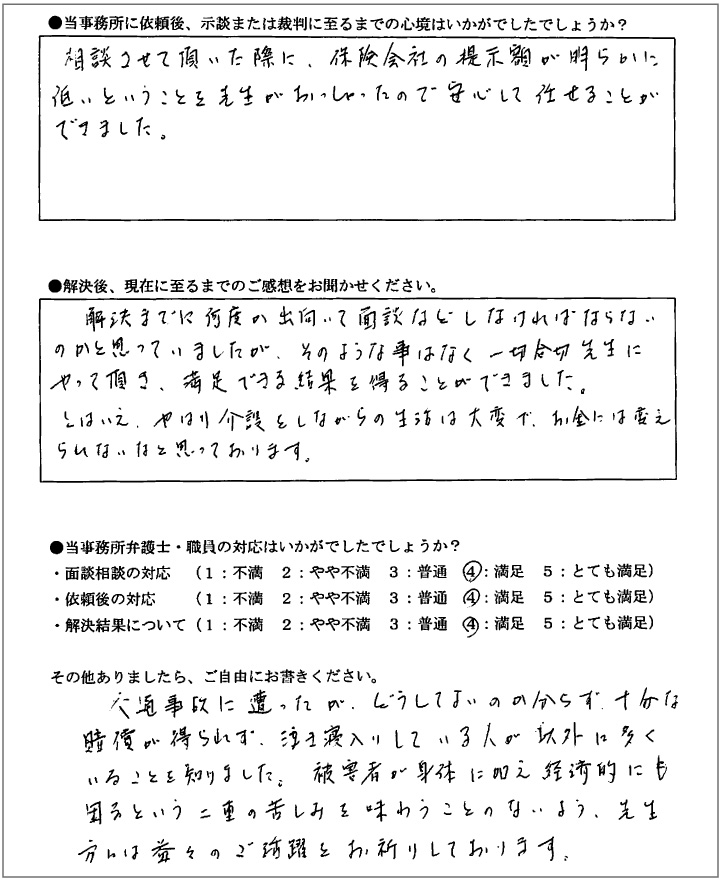 ●当事務所に依頼後、示談または裁判に至るまでの心境はいかがでしたでしょうか？
相談させて頂いた際に、保険会社の提示額が明らかに
低いということを先生がおっしゃったので安心して任せることが
できました。
●解決後、現在に至るまでのご感想をお聞かせください。
解決までに何度か出向いて面談などしなければならない
のかと思っていましたが、そのような事はなく一切合切先生に
やって頂き、満足できる結果を得ることができました。
とはいえ、やはり介護をしながらの生活は大変で、お金には変え
られないなと思っております。
●当事務所弁護士・職員の対応はいかがでしたでしょうか？
・面談相談の対応　（１：不満　２：やや不満　３：普通　④：満足　５：とても満足）
・依頼後の対応　　（１：不満　２：やや不満　３：普通　④：満足　５：とても満足）
・解決結果について（１：不満　２：やや不満　３：普通　④：満足　５：とても満足）
その他ありましたら、ご自由にお書きください。
交通事故に遭ったが、どうしてよいのか分らず、十分な
賠償が得られず、泣き寝入りしている人が以外に多く
いることを知りました。被害者が身体に加え経済的にも
困るという二重の苦しみを味わうことのないよう、先生
方には益々のご活躍をお祈りしております。